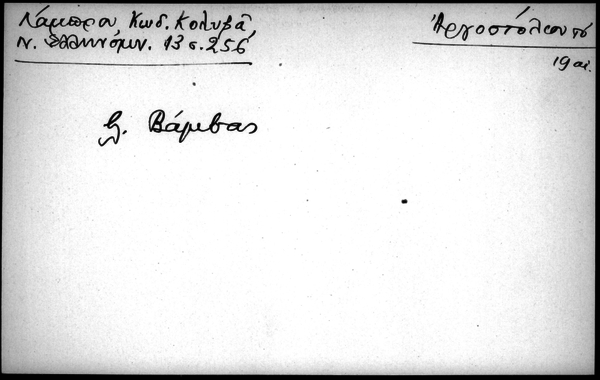 Λάμπρου Κωδ. Κολυβᾶ
Ν. Ἑλληνομν. 13 σ. 256
Ἀργοστόλιον τό
19 αἰ.
βλ. Βάμβας